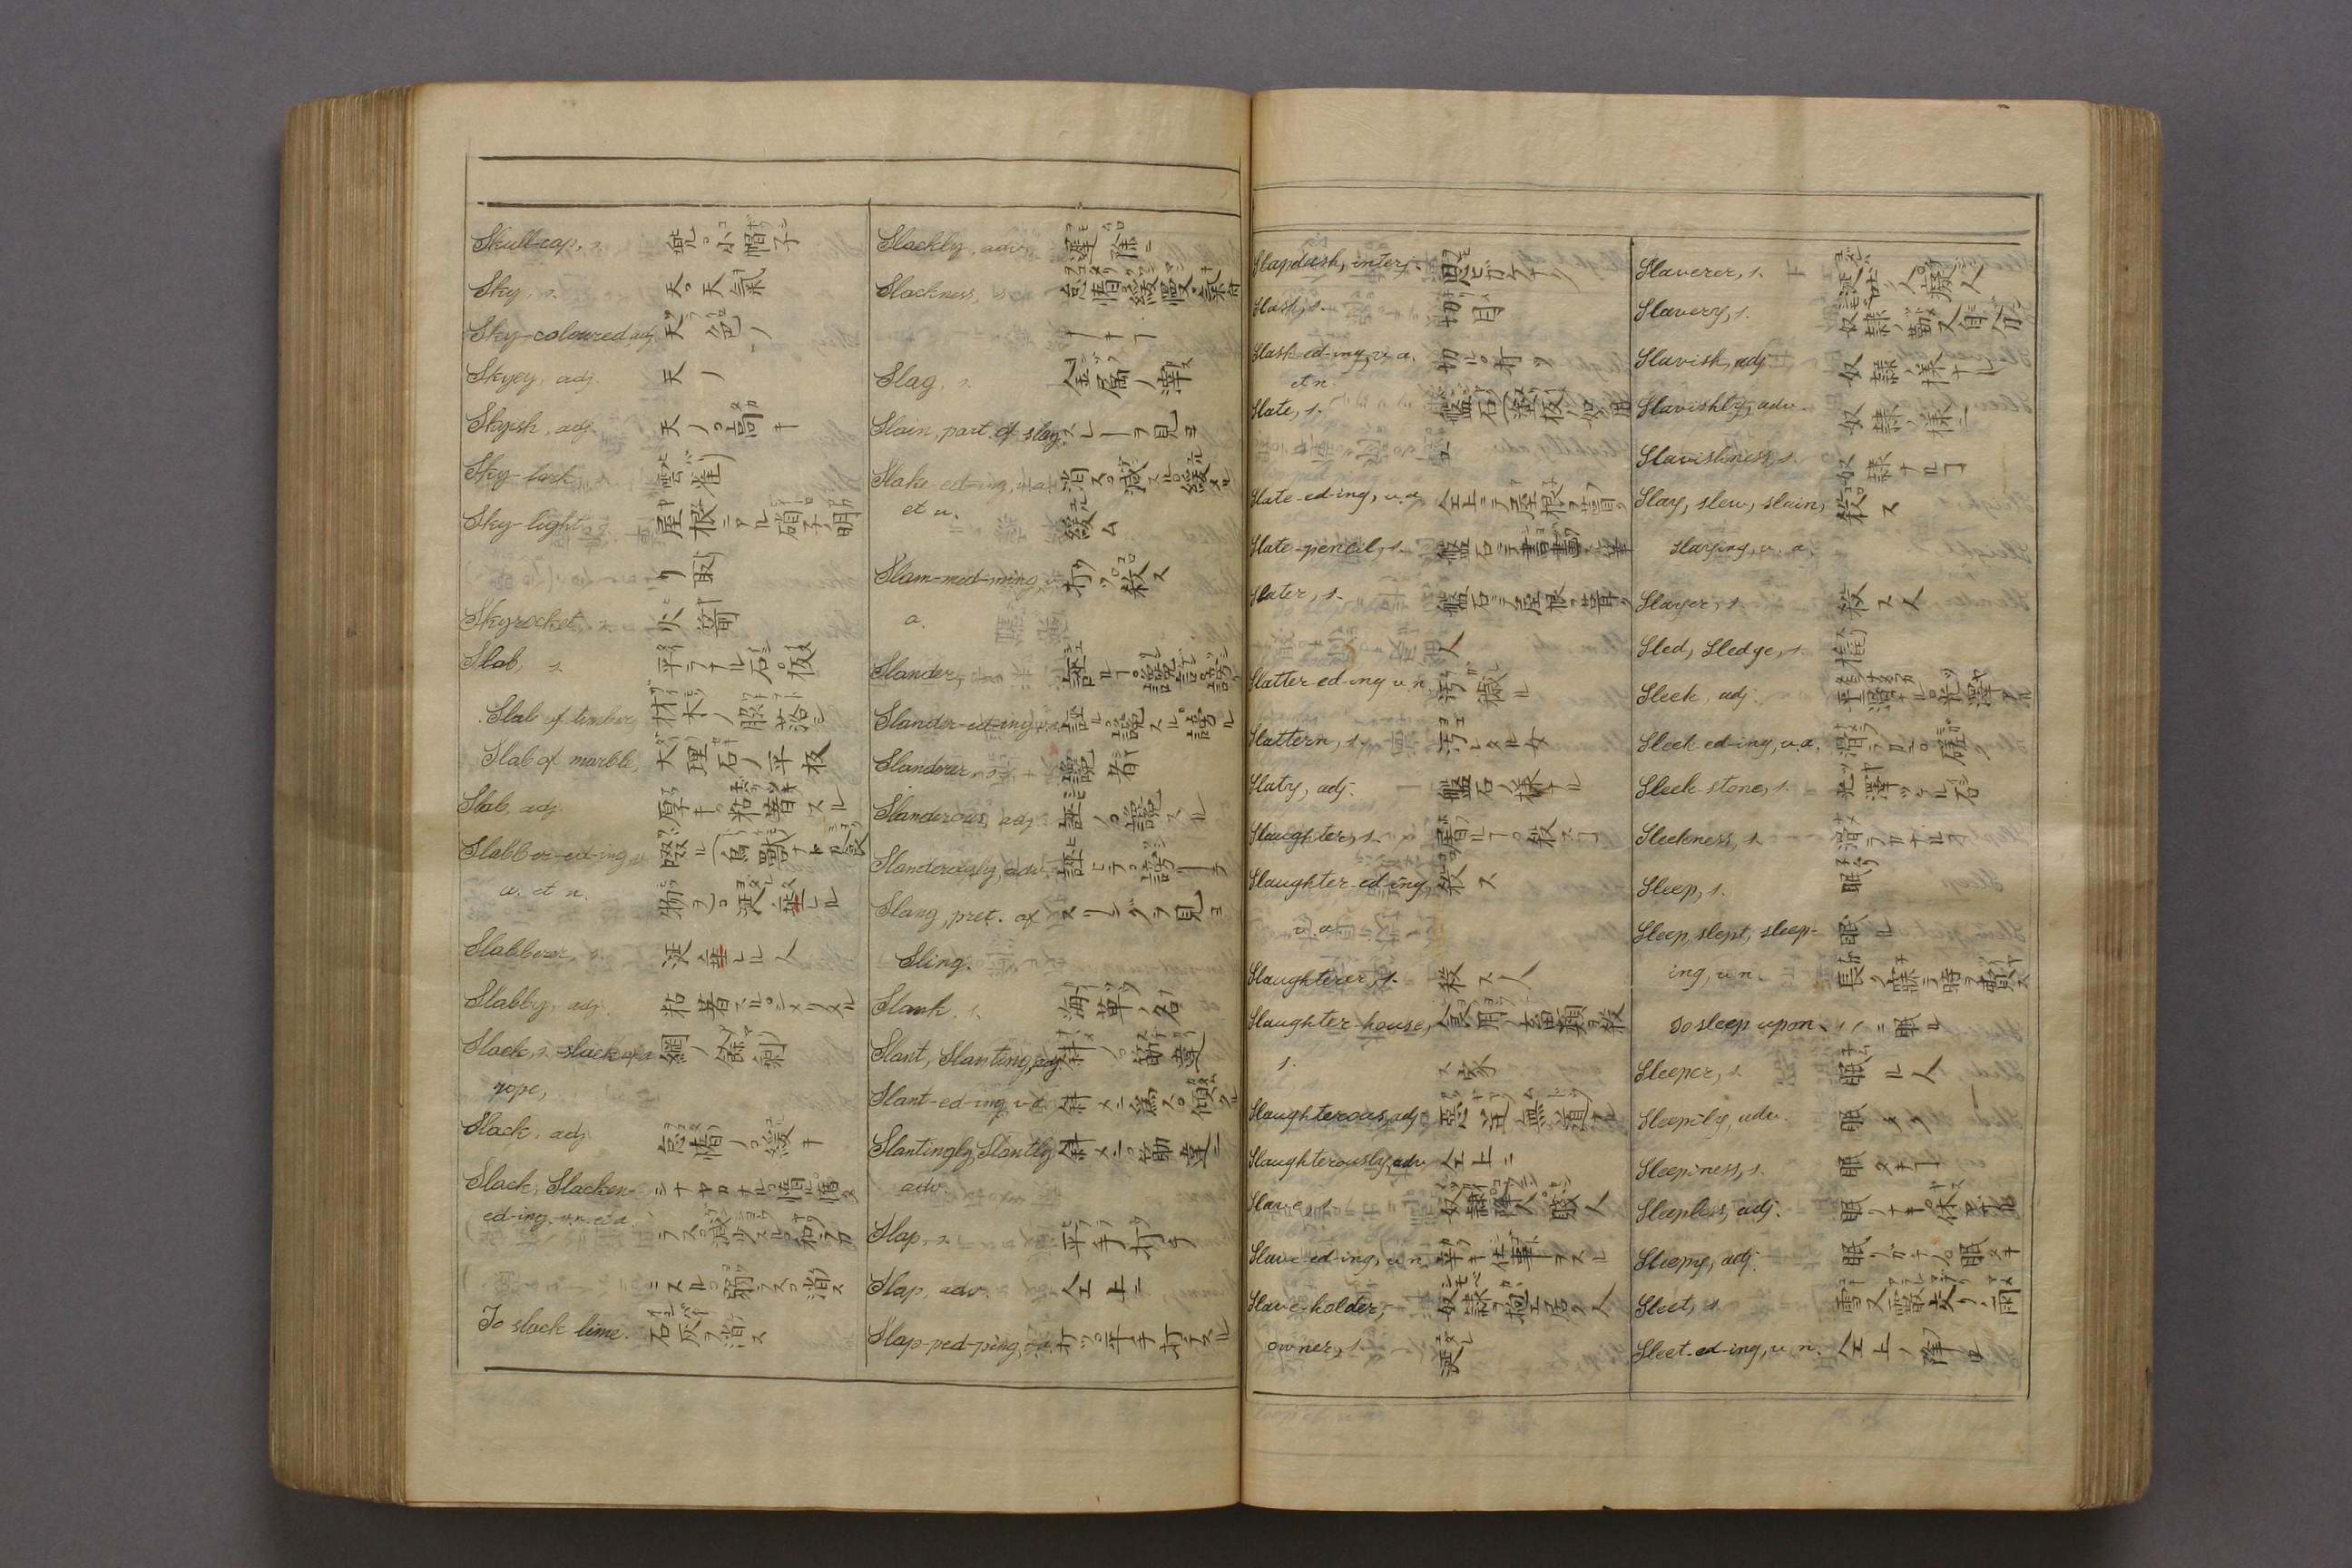 Skull-cap, s. 兜。小帽子
Sky, s. 天。天氣
Sky-coloured adj. 天色ノ
Skyey, adj. 天ノ
Skyish, adj. 天ノ。高キ
Sky-lark, s. 雲雀
Sky-light, s. 屋根ニアル硝子ノ明
リ取
Skyrocket, s. 火箭
Slab, s. 平ラナル石。板
Slab of timber, 材木ノ
Slab of marble, 大理石ノ平板
Slab, adj. 厚キ。粘着スル
Slabber-ed-ing, v. 啜ル(鳥獸ナドガ食
a. et n. 物ヲ)。涎垂レル
Slabberer, s. 涎垂レル人
Slabby, adj. 粘着スル。シメリタル
Slack, s. slack of a 綱ノ餘剰
rope,
Slack, adj. 怠惰ノ。緩キ
Slack, Slacken- シナヤカナル。
ed-ing. v.n. et a. ラス。減少スル。和ラカ
ニスル。弱ラス。消ス
To slack lime. 石灰ヲ消ス
Slackly, adv. 遲ク。除ニ
Slackness, s. 怠惰。緩慢。氣
ーナー
Slag, s. 金屬ノ滓
Slain, part. of slay. スレーヲ見ヨ
Slake-ed-ing, v.a. 消ス。減スル。緩メル
et n. 緩ム
Slam-med-ming, v. 打ツ。殺ス
a.
Slander, s. 誣ルー。讒言。誹謗
Slander-ed-ing, v.a. 誣ル。讒スル。謗ル
Slanderer, s. 讒者
Slanderous, adj. 誣ノ。讒スル
Slanderously, adv. 誣ヒテ。謗リテ
Slang, pret. of スリングヲ見ヨ
Sling.
Slank, s. 海草ノ名
Slant, Slanting, adj. 斜ノ。筋違
Slant-ed-ing, v.a. 斜メニ為ス。傾ケル
Slantingly, Slantly 斜メニ。筋違ニ
adv.
Slap, s. 平手打ク
Slap, adv. 仝上ニ
Slap-ped-ping, v.a. 打ツ。平手打チスル
Slapdash, interj. 思ヒガケナク
Slash, s. 切目
Slash-ed-ing, v.a. 切ル。打ツ
et n.
Slate, s. 盤石
Slate-ed-ing, v.a. 仝上ニテ屋根ヲ葺ク
Slate-pencil, s. 盤石ニテ書畫スル筆
Slater, s. 盤石ニテ屋根ヲ葺ク
人
Slatter-ed-ing v.n. 汚穢ル
Slattern, s. 汚レタル女
Slaty, adj. 盤石ノ様ナル
Slaughter, s. 屠ルー。殺スー
Slaughter-ed-ing, 殺ス
v. a.
Slaughterer, s. 殺ス人
Slaughter-house, 食用ノ畜類ヲ殺
s. ス家
Slaughterous, adj. 惡逆無道ナル
Slaughterously, adv. 仝上ニ
Slave, s. 奴隷。降人。賤人
Slave-ed-ing, v.n. 辛キ仕事ヲスル
Slave-holder, 奴隷ヲ抱エ居ク人
owner, s. 涎
Slaverer, s. 涎吐ク人。癡人
Slavery, s. 奴隷ノ勤又身分
Slavish, adj. 奴隷ノ様ナル
Slavishly, adv. 奴隷ノ様ニ
Slavishness, s. 奴隷ナルコ
Slay, slew, slain, 殺ス
slaying, v. a.
Slayer, s. 殺ス人
Sled, Sledge, s. 橇
Sleek, adj. 平滑ナル。光澤アル
Sleek-ed-ing, v.a. 滑ラカニ磋ク
Sleek-stone, s. 光澤ツケル石
Sleekness, s. 滑ラカナルコ
Sleep, s. 眠
Sleep, slept, sleep- 眠ル
ing, v.n. 長ク寐テ時ヲ費ス
To sleep upon. 〃ニ眠ル
Sleeper, s. 眠ル人
Sleepily, adv. 眠ク
Sleepiness, s. 眠タキー
Sleepless, adj. 眠リナキ。休マザル
Sleepy, adj. 眠リガチノ。眠タキ
Sleet, s. 雪又霰交リノ雨
Sleet-ed-ing, v. n. 仝上ノ降ル